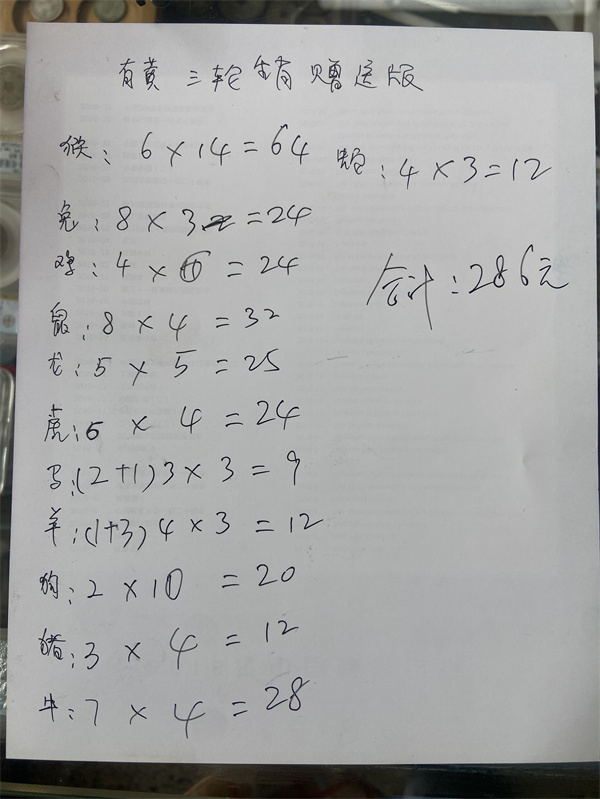 有黄三轮销赠送版
猴：6×14=64
兔：8×3=24
鸡：4×6=24
鼠：8×4=32
龙：5×5=25
虎：6×4=24
马：(2+1)3×3=9
羊：(1+3)4×3=12
狗：2×10=20
猪：3×4=12
牛：7×4=28
蛇：4×3=12
合计：286元